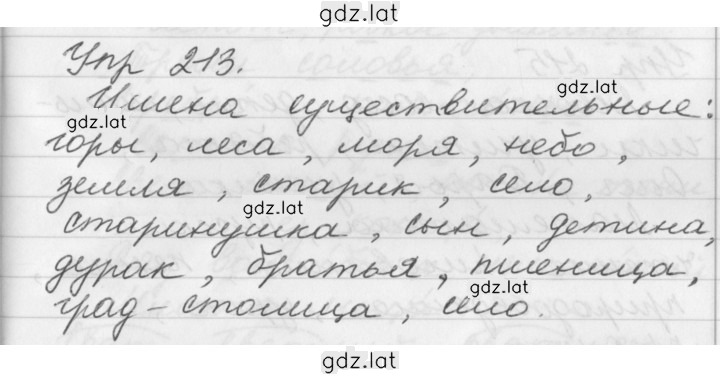 gdz.lat
Упр 213.
Имена существительные:
gdz.lat
gdz.lat
горы, леса, моря, небо,
земля, старик, село,
gdz.lat
старинушка, сын, детина,
дурак, братья, пшеница,
gdz.lat
град-столица, село.
gdz.lat